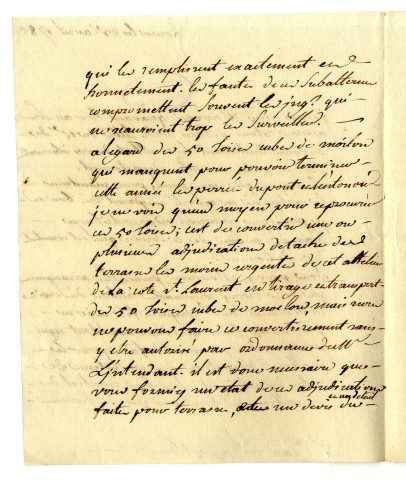 qui les remplissent exactement et
honnetement. les fautes de ces Subalternes
compromettent souvent les ingrs qui
ne sauroient trop les Surveiller.
a legard des 50 toises cubes de moilon
qui manquent pour pouvoir terminer
cette année les perrés du pont
je ne voix qu'un moyen pour se procurer
ces 50 toises; c'est de convertir une ou
plusieurs adjudications de taches de
terrasse les moins urgentes de cet attelier
de la cote St. Laurent en tirage et transport
de 50 toises cubes de moelon, mais nous
ne pouvons faire ce convertissement sans
y être autorisé par ordonnance de Mr
L'intendant. il est donc necessaire que
vous formiez un etat de ces adjudications
faites pour terrasse, et un devis de